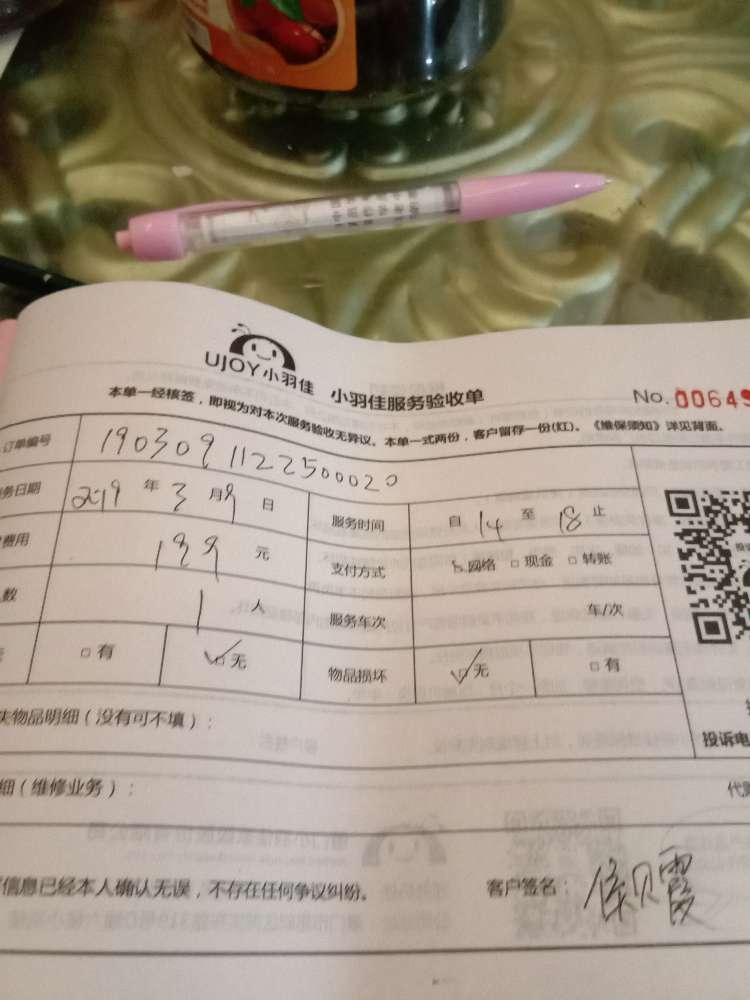 UJOY小羽佳 小羽佳服务验收单 No. 00649
本单一经核签，即视为对本次服务验收无异议。本单一式两份，客户留存一份(红)。《维保须知》详见背面。
订单编号 1903091122500020
务日期 2019 年 3 月 9 日 服务时间 自 14 至 18 止
费用 199 元 支付方式 网络 □ 现金 □ 转账
数 1 人 服务车次 车/次
□ 有 ☑ 无 物品损坏 ☑ 无 □ 有
失物品明细（没有可不填）：
投诉电
细（维修业务）：
信息已经本人确认无误，不存在任何争议纠纷。 客户签名：